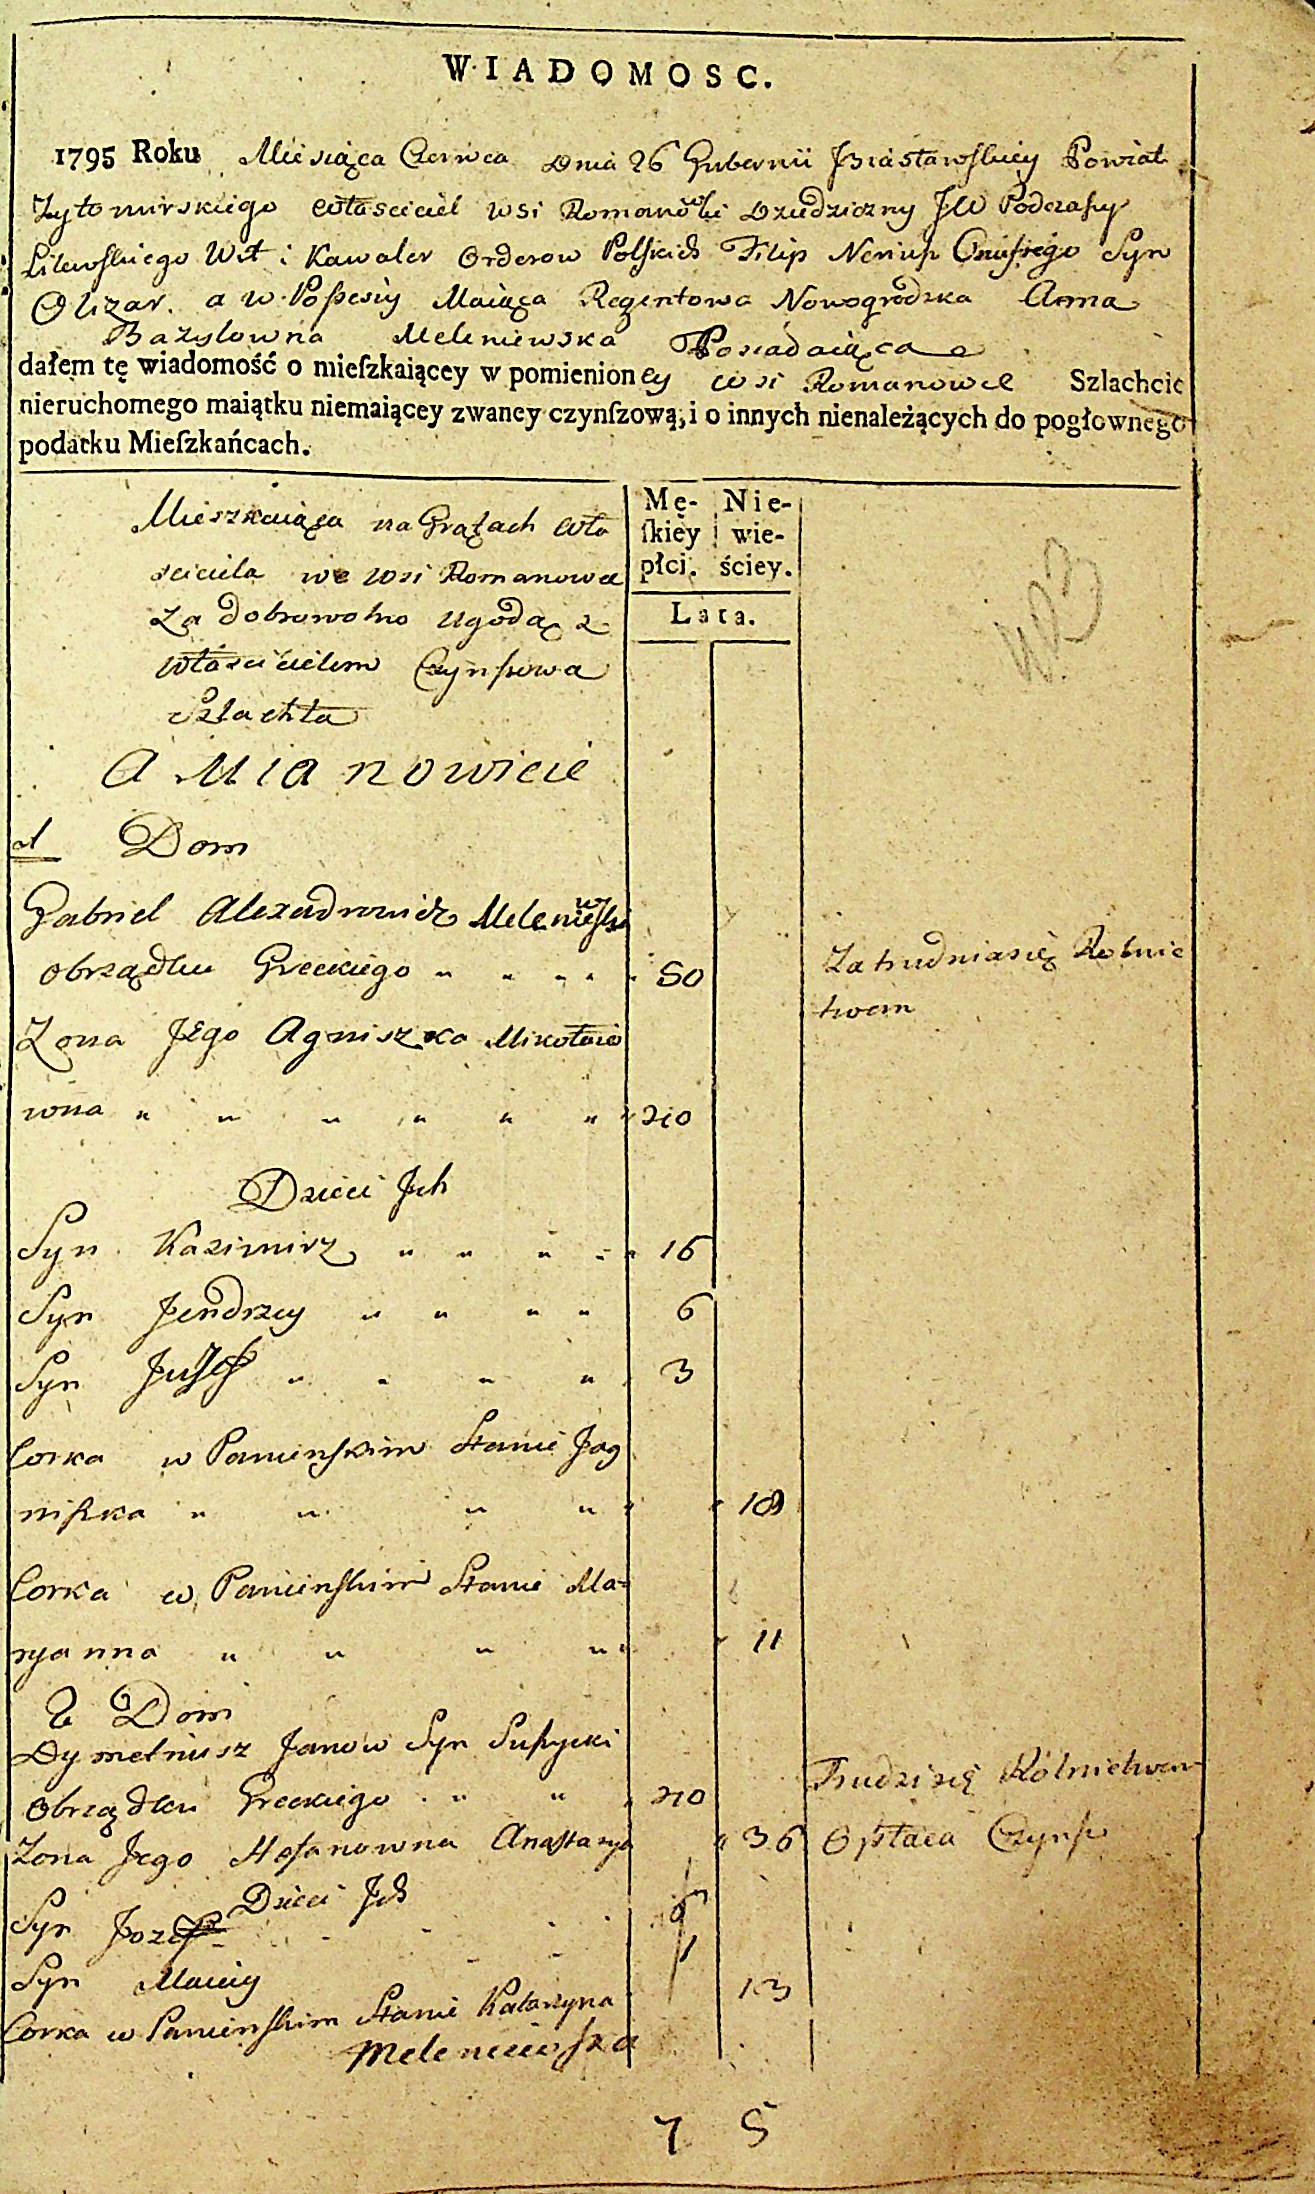 WIADOMOSC.
1795 Roku Miesiąca Czerwca Dnia 26 Gubernii Braslawskiey Powiat
Zytomirskiego własciciel wsi Romanowki Dziedziczny JW Podczaszy
Litewskiego Wit i Kawaler Orderow Polskich Filip Neriusz Onufrego Syn
Olizar. a w Possesiy Maiąca Regentowa Nowogrodzka Anna
Bazylowna Meleniewska Posiadaiąca
dałem tę wiadomość o mieſzkaiącey w pomienioney wsi Romanowce Szlachcie
nieruchomego maiątku niemaiącey zwaney czynſzową, i o innych nienależących do pogłownego
podatku Mieſzkańcach.
Mieszkaiąca na Grątach wła
sciciela we wsi Romanowce
za dobrowolno ugodą z
włascicielem Czynszowa
Szlachta
A Mianowicie
Mę- Nie-
ſkiey wie-
płci. ściey.
Lata.
1 Dom
Gabriel Alexadrowicz Meleniewski
obrządku Greckiego 50 Zatrudniasię Rolnic
twem
Zona Jego Agniszka Mikołaio
wna 40
Dzieci Jch
Syn Kazimirz 16
Syn Jendrzey 6
Syn Juzef 3
Corka w Panienskim Stanie Jag
niszka 18
Corka w Panienskim Stanie Ma-
ryanna 11
2 Dom
Dymetriusz Janow Syn Suszycki
Obrządku Greckiego 40 Trudzisię Rolnictwem
Zona Jego Stefanowna Anastazya 36 Opłaca Czynsz
Dzieci Jch
Syn Jozef
Syn Maciey 1
Corka w Panienskim Stanie Katarzyna 13
Meleniewska
7 5